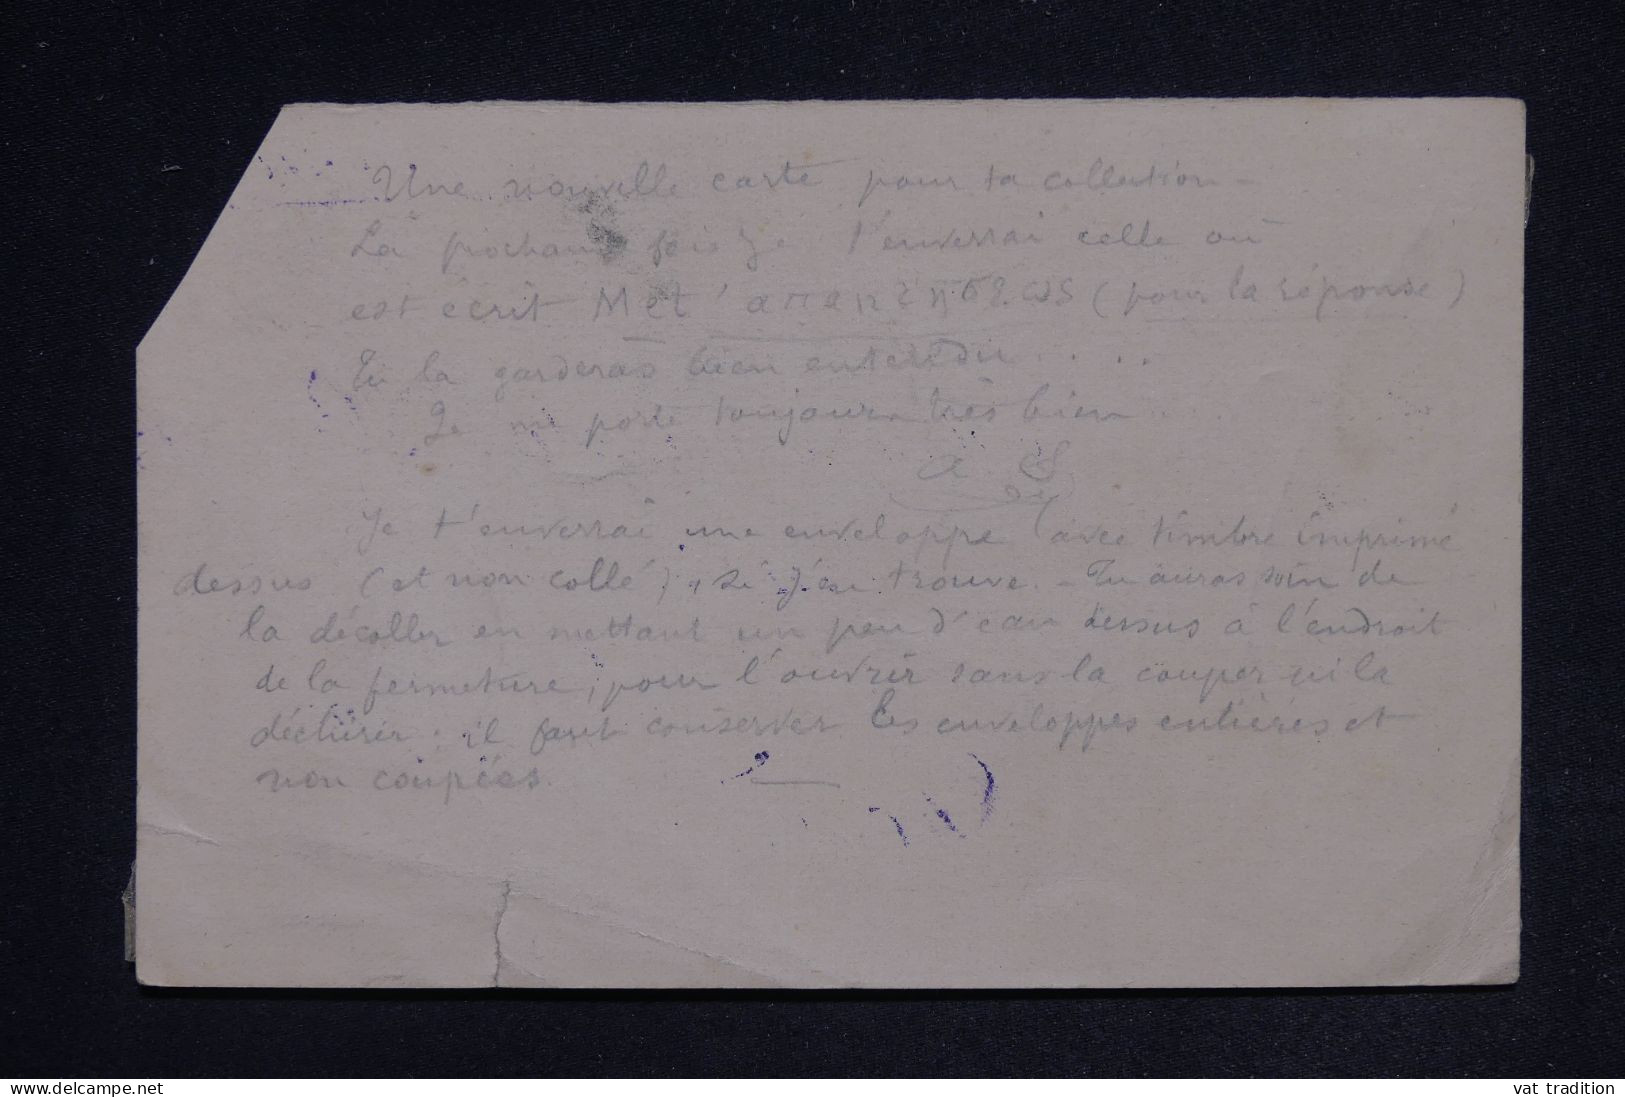 Une nouvelle carte pour ta collection -
La prochaine fois je t'enverrai celle où
est écrit Met' απαντήσεως (pour la réponse)
Tu la garderas bien entendu . . . .
Je me porte toujours très bien . .
a S
Je t'enverrai une enveloppe (avec timbre imprimé
dessus (et non collé), si j'en trouve. - Tu auras soin de
la décoller en mettant un peu d'eau dessus à l'endroit
de la fermeture, pour l'ouvrir sans la couper ni la
déchirer : il faut conserver les enveloppes entières et
non coupées.
www.delcampe.net
vat tradition